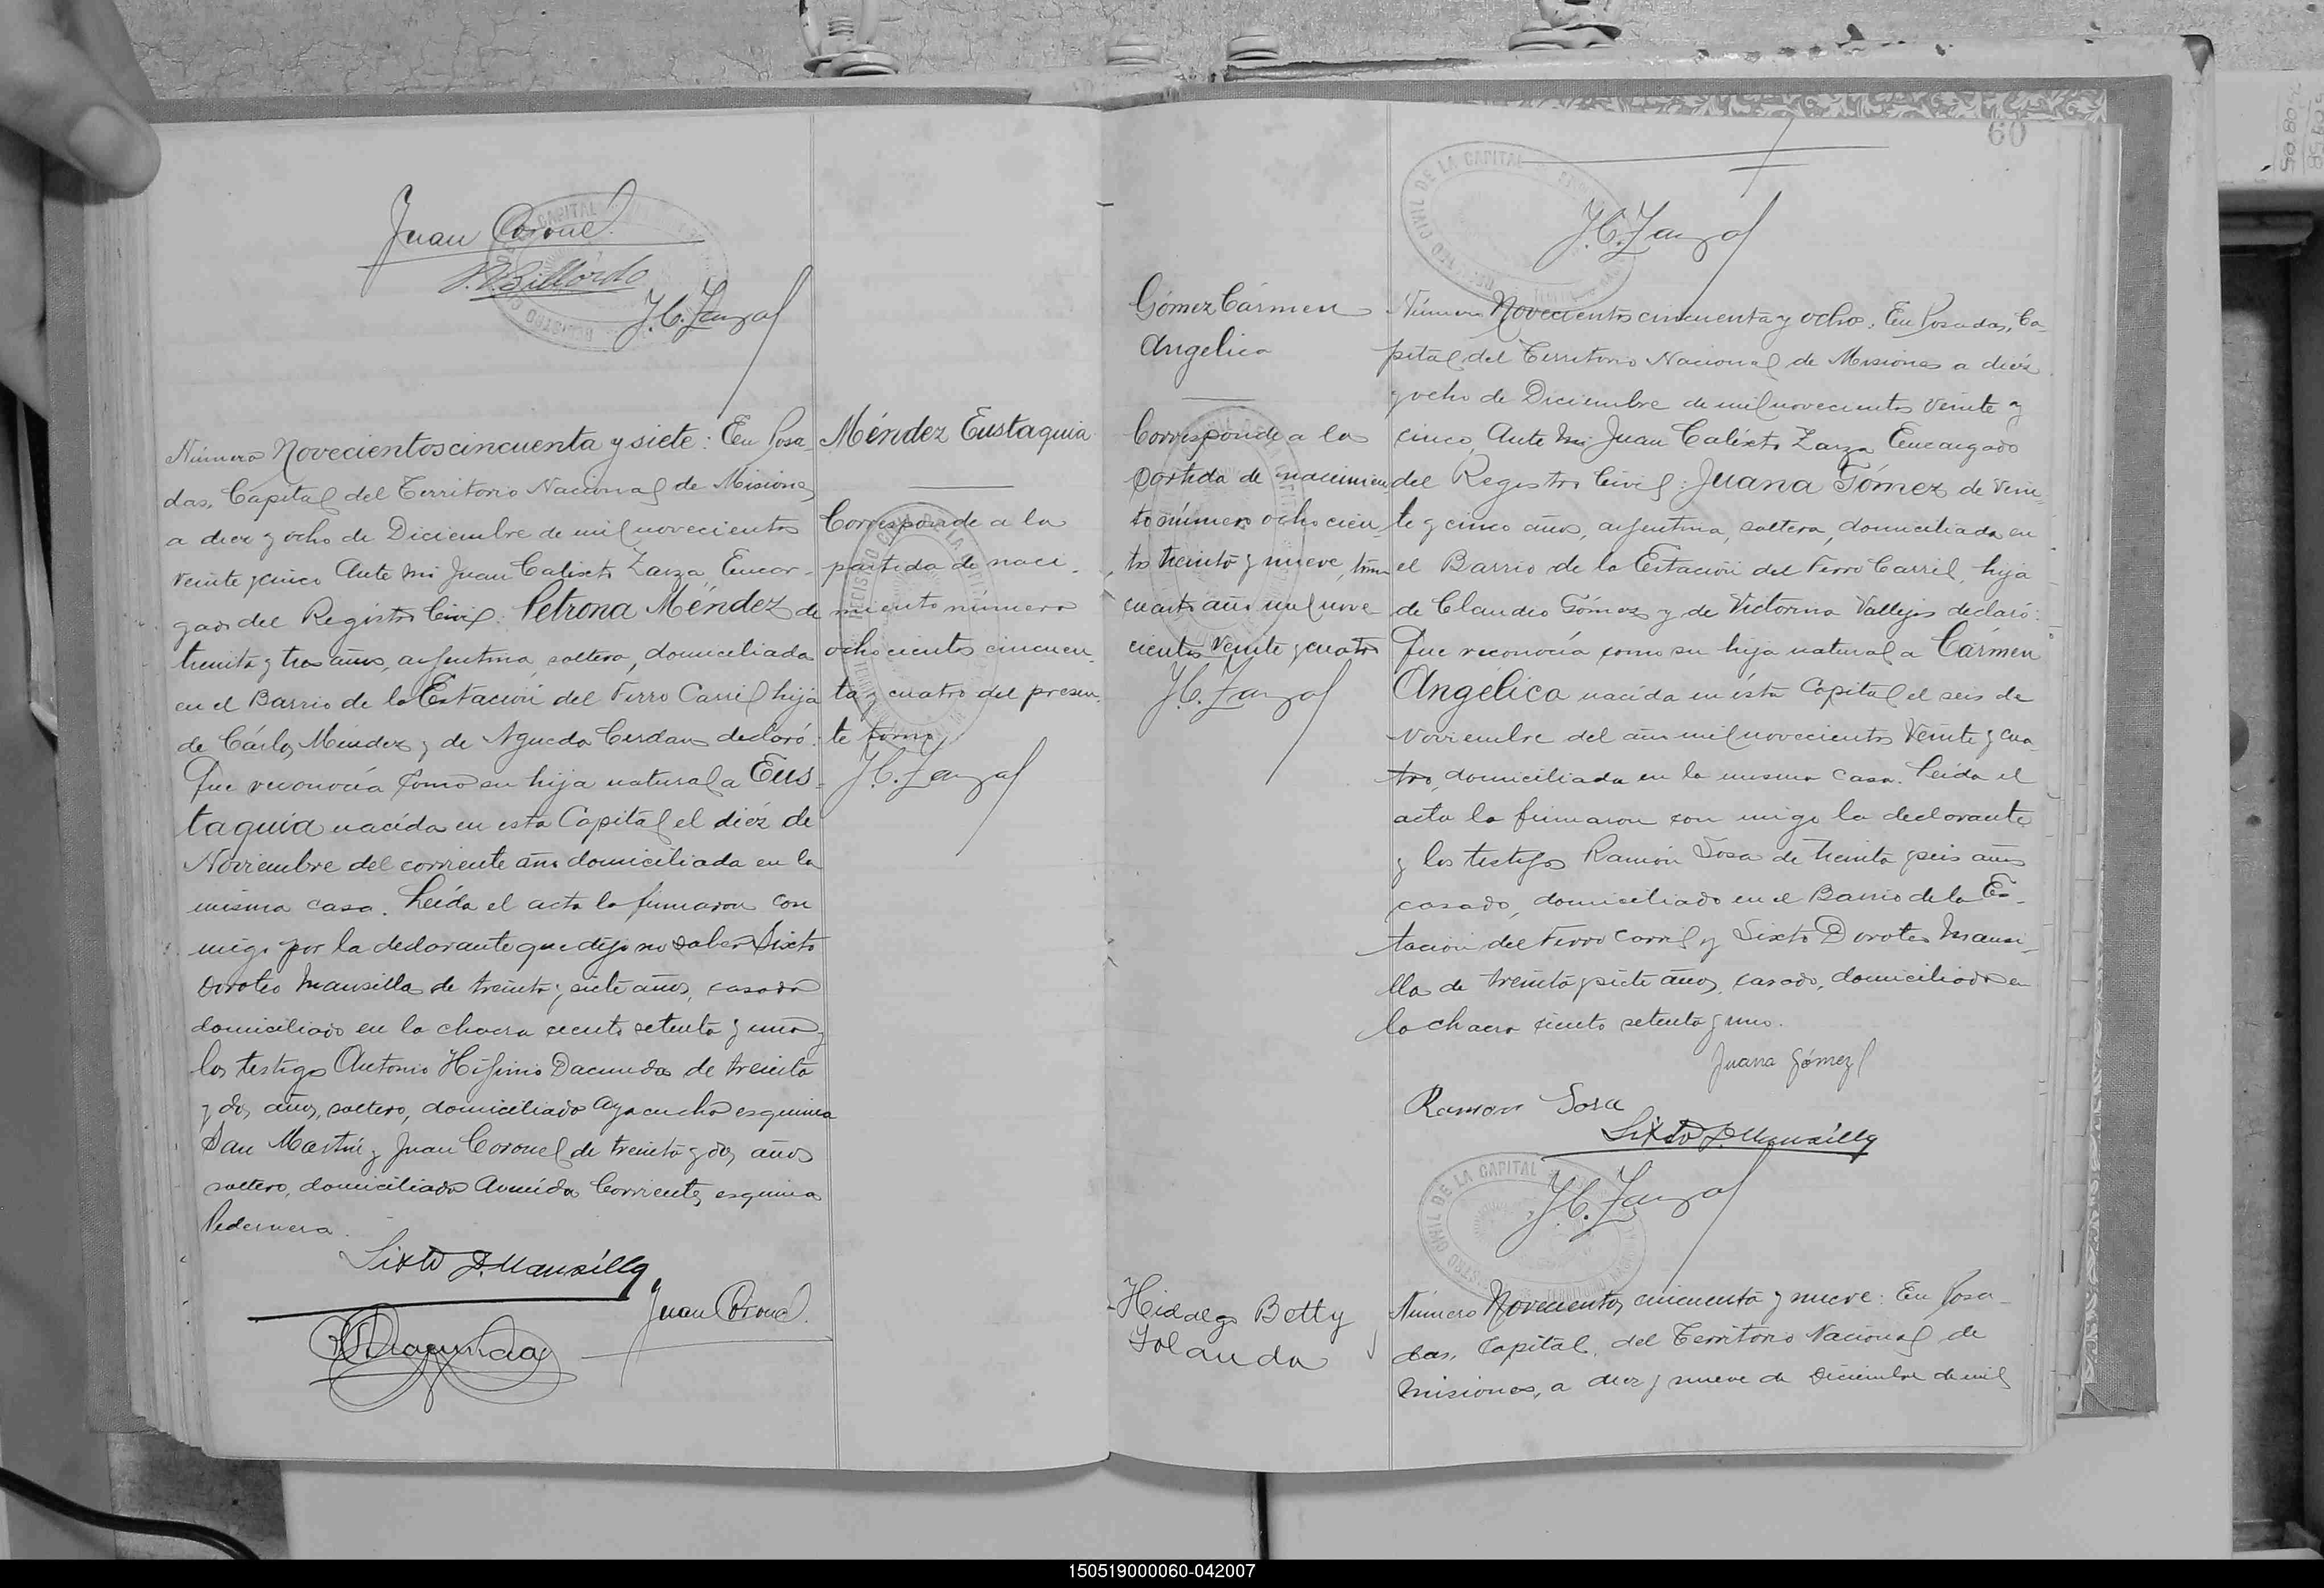 Juan Coronel
J. C. Zarza
Número Novecientos cincuenta y siete: En Posa-
das, Capital del Territorio Nacional de Misiones
a diez y ocho de Diciembre de mil novecientos
veinte y cinco Ante mi Juan Calixto Zarza, Encar-
gado del Registro Civil: Petrona Méndez de
treinta y tres años, argentina, soltera, domiciliada
en el Barrio de la Estación del Ferro Carril hija
de Cárlos Méndez y de Agueda Cerdan declaró:
Que reconocía como su hija natural a Eus-
taquia nacida en esta Capital el diéz de
Noviembre del corriente año domiciliada en la
misma casa. Leída el acta la firmaron con
migo por la declarante que dijo no saber Sixto
Doroteo Mansilla de treinta y siete años, casado
domiciliado en la chacra ciento setenta y uno y
los testigos Antonio Higinio Dacunda de treinta
y dos años, soltero, domiciliado Ayacucho esquina
San Martín y Juan Coronel de treinta y dos años
soltero, domiciliado Avenida Corrientes esquina
Pedernera.
Sixto D. Mansilla
Juan Coronel
Méndez Eustaquia
Corresponde a la
partida de naci-
miento número
ochocientos cincuen-
ta y cuatro del presen-
te tomo
J. C. Zarza
60
J. C. Zarza
Gómez Cármen
Angelica
Corresponde a la
partida de nacimien-
to número ochocien-
tos treinta y nueve, tomo
cuarto año mil nove
cientos veinte y cuatro
J. C. Zarza
Número Novecientos cincuenta y ocho: En Posadas, Ca-
pital del Territorio Nacional de Misiones a diéz
y ocho de Diciembre de mil novecientos veinte y
cinco, Ante mi Juan Calixto Zarza Encargado
del Registro Civil: Juana Gómez de vein-
te y cinco años, argentina, soltera, domiciliada en
el Barrio de la Estación del Ferro Carril, hija
de Claudio Gómez y de Victorina Vallejos declaró:
Que reconocía como su hija natural a Cármen
Angélica nacida en ésta Capital el seis de
Noviembre del año mil novecientos veinte y cua-
tro, domiciliada en la misma casa. Leida el
acta la firmaron con migo la declarante
y los testigos Ramón Sosa de treinta y seis años
casado, domiciliado en el Barrio de la Es-
tación del Ferro Carril y Sixto Doroteo Mansi-
lla de treinta y siete años, casado, domiciliado en
la chacra ciento setenta y uno.
Juana Gómez
Ramon Sosa
Sixto D. Mansilla
J. C. Zarza
Hidalgo Betty
Yolanda
Número Novecientos cincuenta y nueve: En Posa-
das, Capital, del Territorio Nacional de
Misiones, a diez y nueve de Diciembre de mil
150519000060-042007